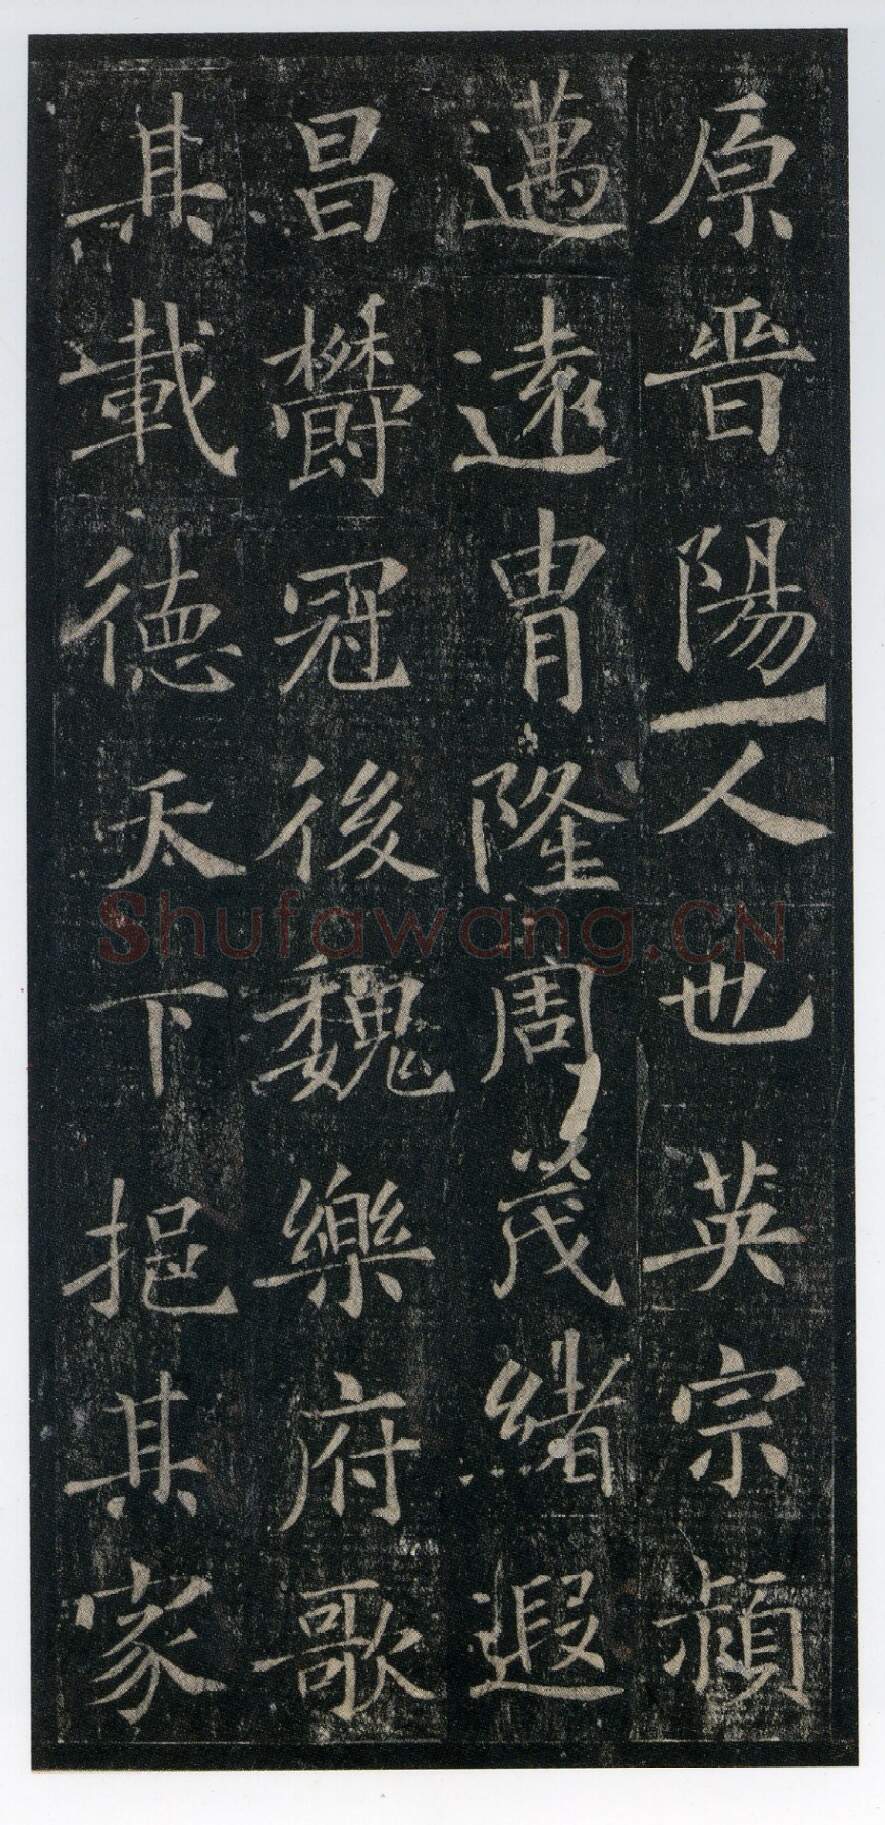 原晋陽人也英宗頴
邁遠冑隆周茂緒遐
昌欝冠後魏樂府歌
其載徳天下挹其家
Shufawang.CN